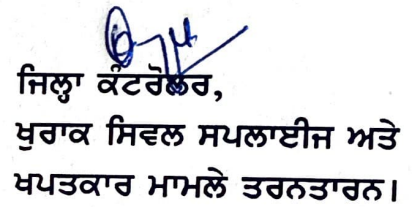 ਜਿਲ੍ਹਾ ਕੰਟਰੋਲਰ,
ਖੁਰਾਕ ਸਿਵਲ ਸਪਲਾਈਜ ਅਤੇ
ਖਪਤਕਾਰ ਮਾਮਲੇ ਤਰਨਤਾਰਨ।